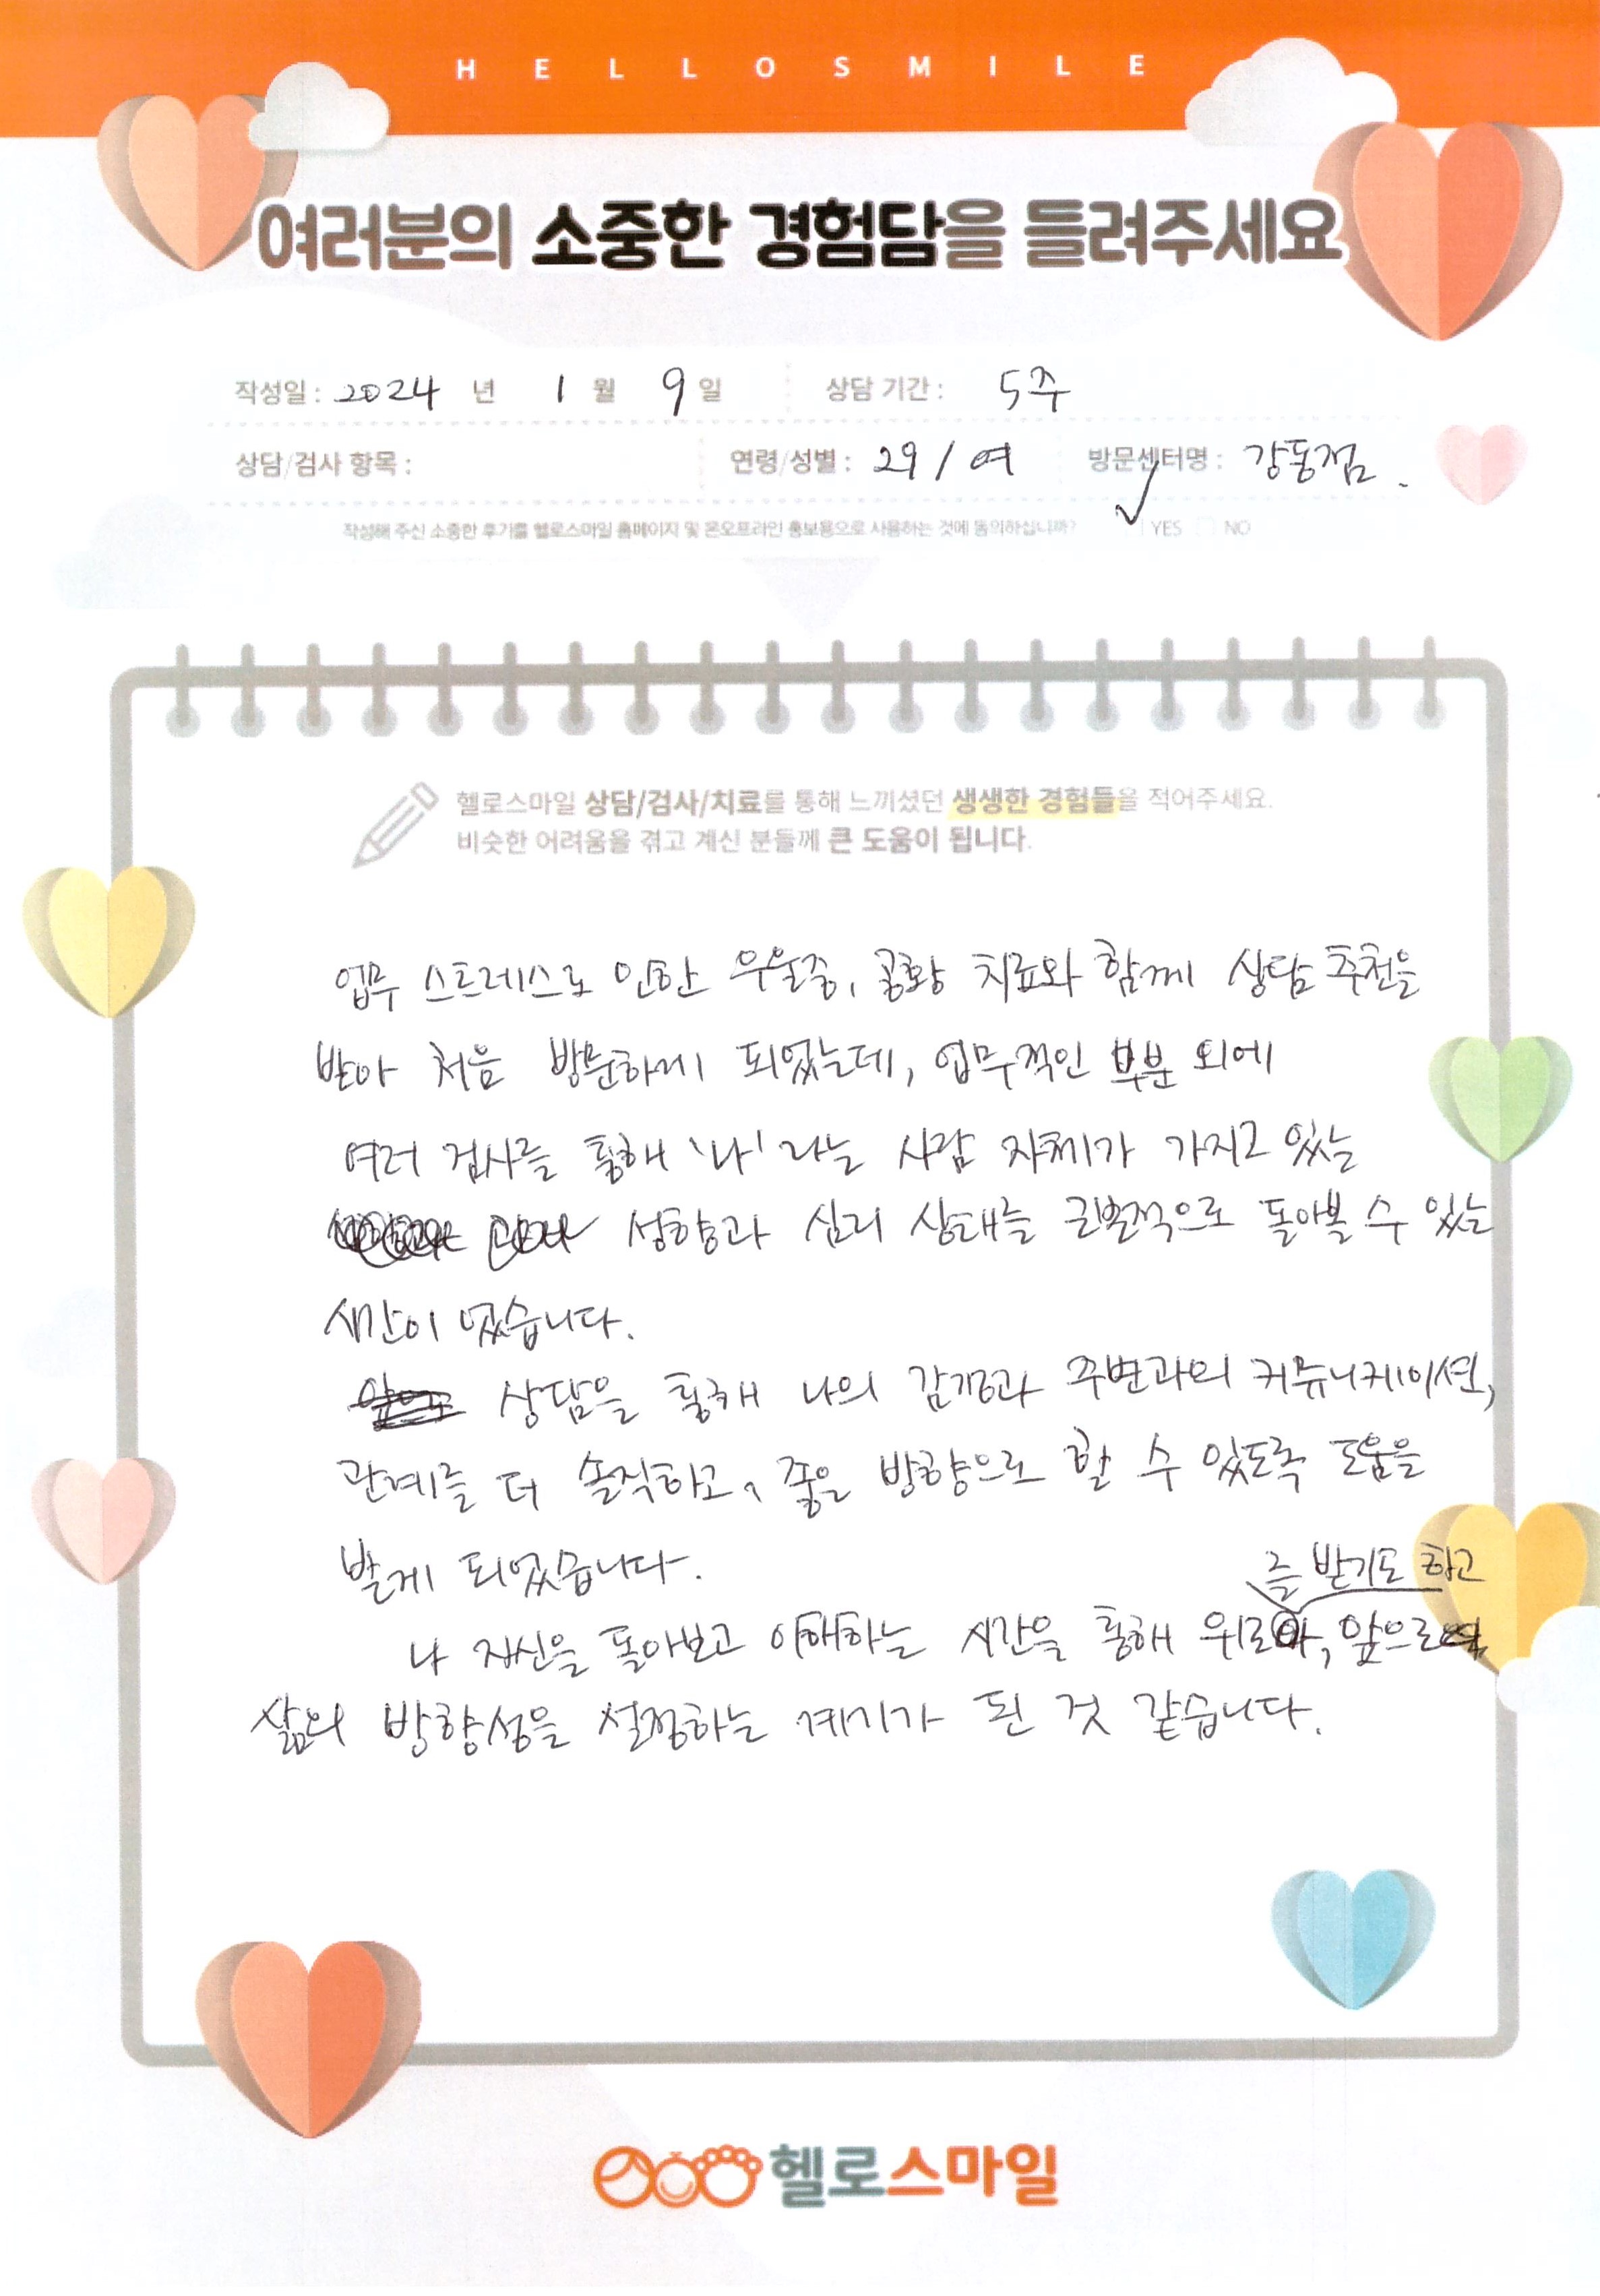 HELLOSMILE
여러분의 소중한 경험담을 들려주세요
작성일 : 2024 년 1 월 9 일 상담 기간 : 5주
상담/검사 항목 : 연령/성별 : 29 / 여 방문센터명 : 강동점.
작성해 주신 소중한 후기를 헬로스마일 홈페이지 및 온오프라인 홍보용으로 사용하는 것에 동의하십니까? YES NO
헬로스마일 상담/검사/치료를 통해 느끼셨던 생생한 경험들을 적어주세요.
비슷한 어려움을 겪고 계신 분들께 큰 도움이 됩니다.
업무 스트레스로 인한 우울증, 공황 치료와 함께 상담 추천을
받아 처음 방문하게 되었는데, 업무적인 부분 외에
여러 검사를 통해 '나' 라는 사람 자체가 가지고 있는
성향과 심리 상태를 근본적으로 돌아볼 수 있는
시간이 였습니다.
상담을 통해 나의 감정과 주변과의 커뮤니케이션,
관계를 더 솔직하고, 좋은 방향으로 할 수 있도록 도움을
받게 되었습니다.
를 받기도 하고
나 자신을 돌아보고 이해하는 시간을 통해 위로, 앞으로
삶의 방향성을 설정하는 계기가 된 것 같습니다.
헬로스마일